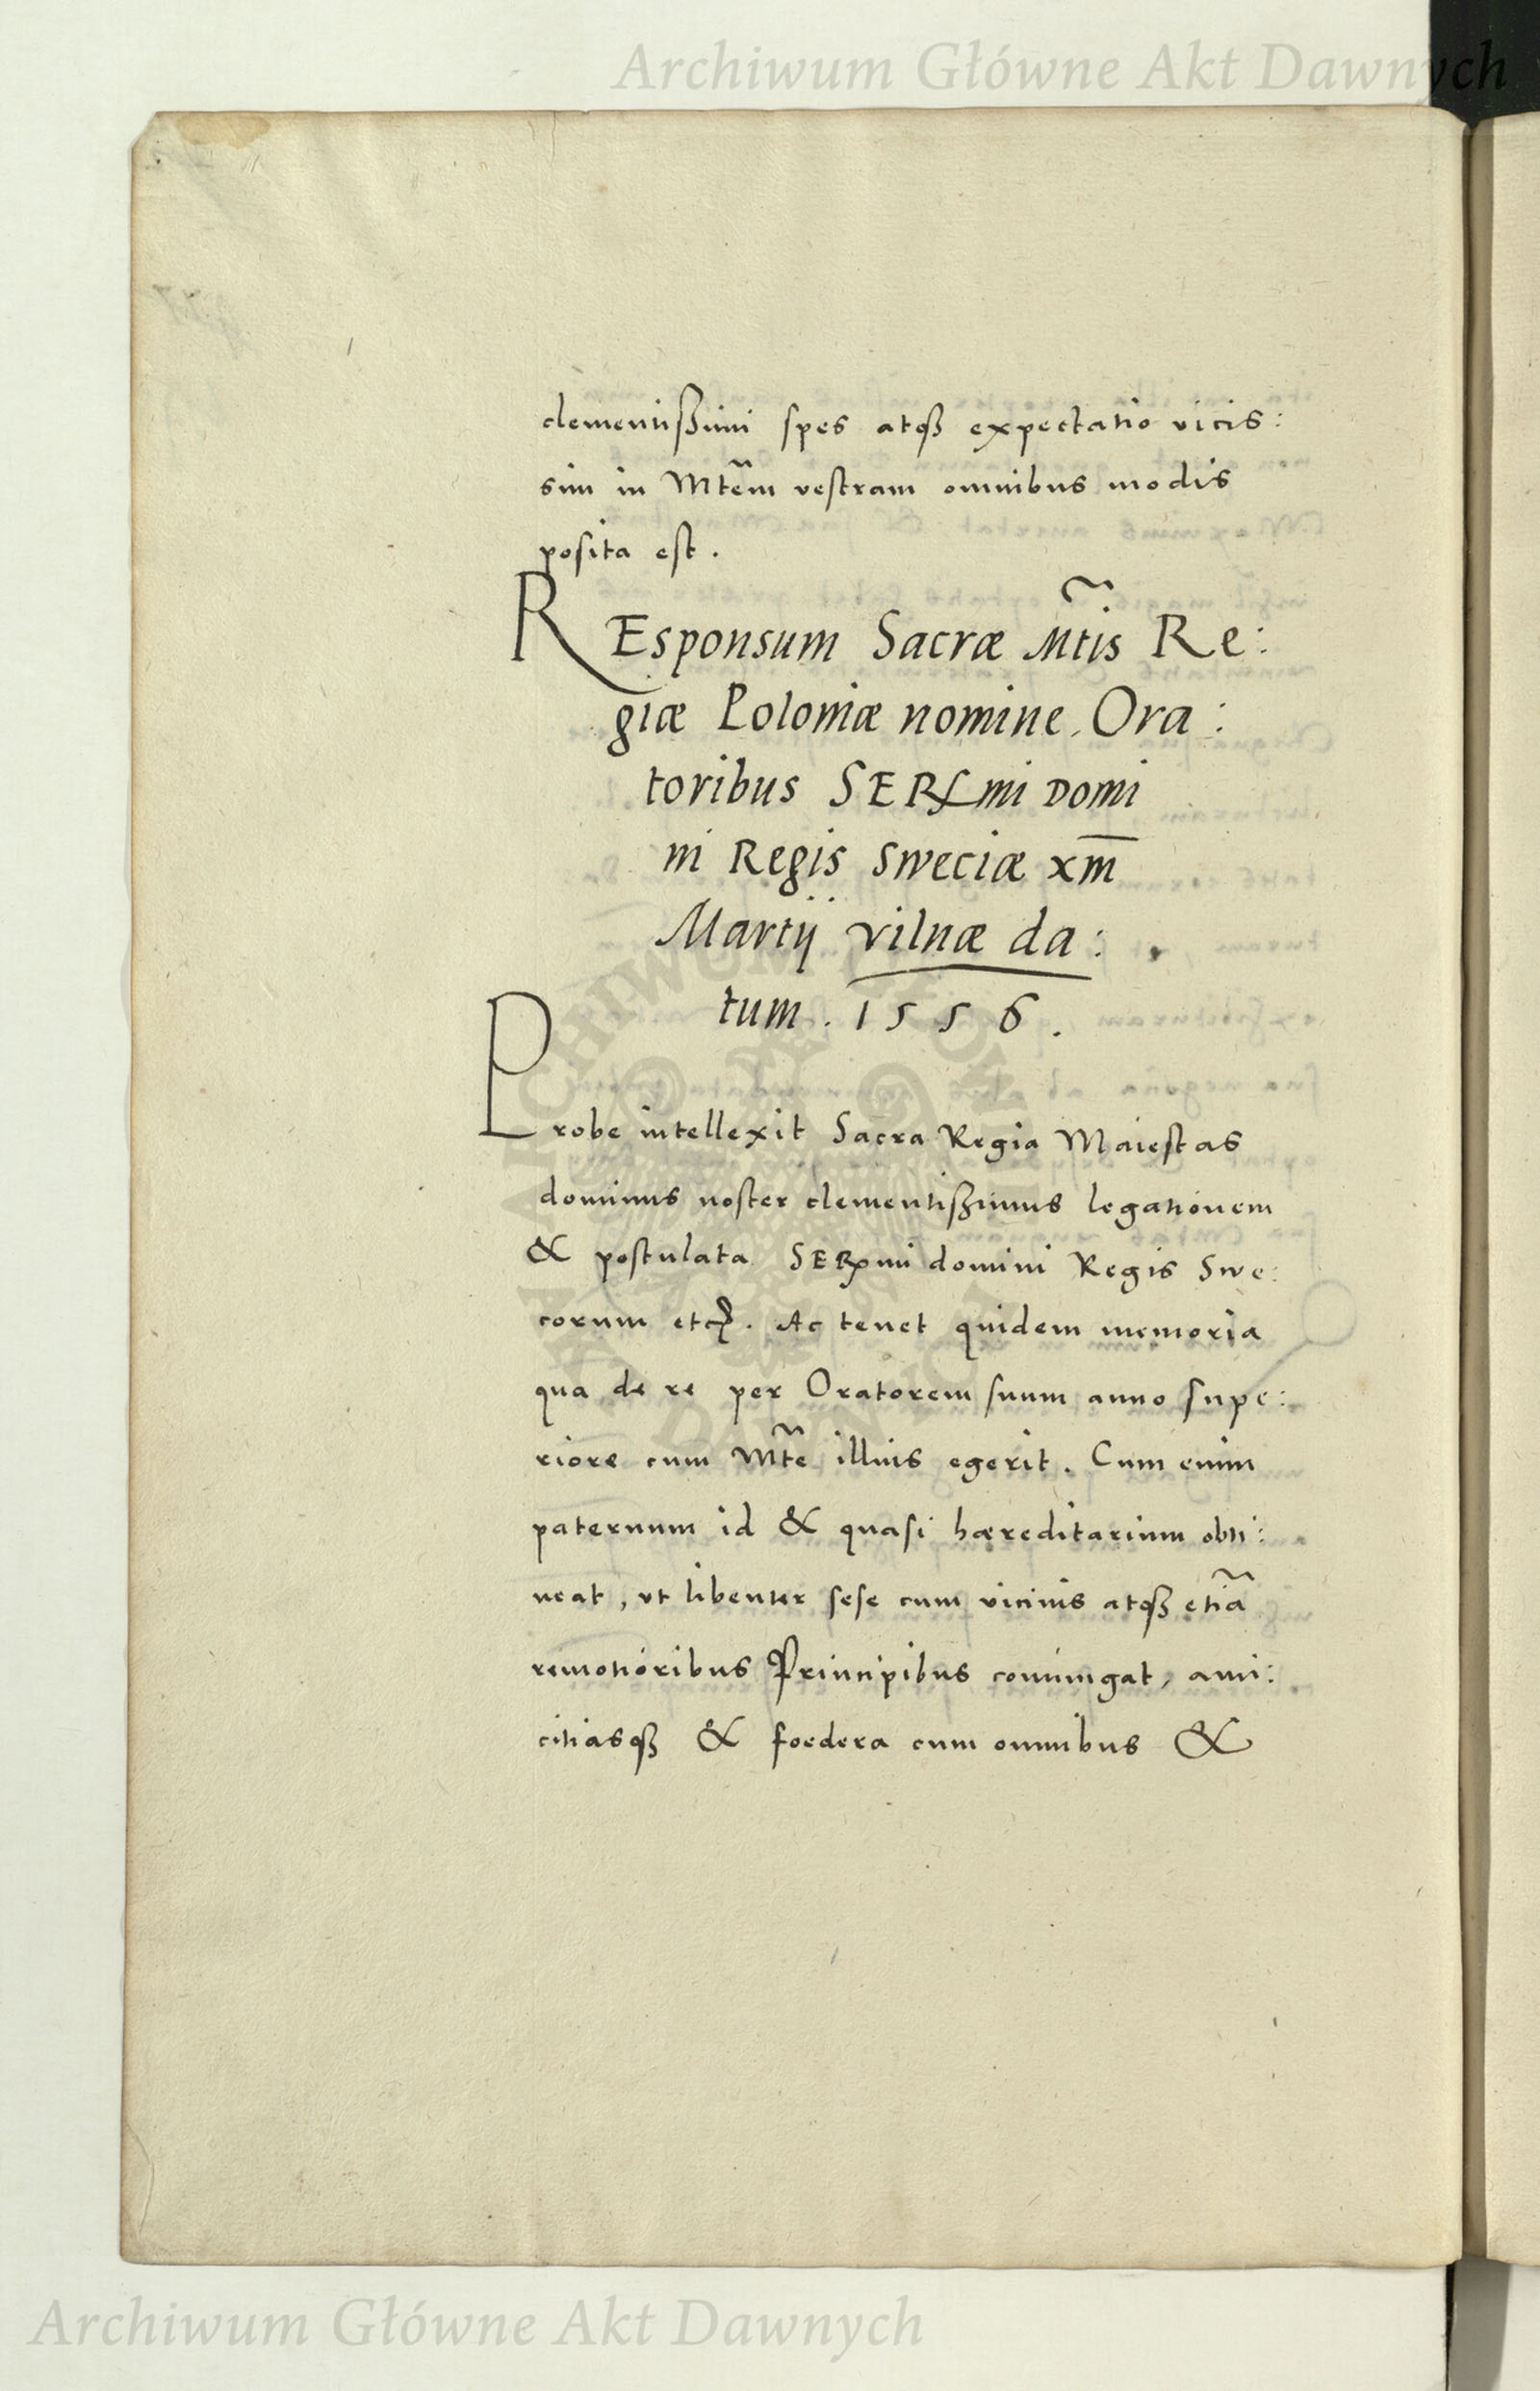 Archiwum Główne Akt Dawnych
clementißimi spes atqß expectatio vicis:
sim in Mtẽm vestram omnibus modis
posita est.
REsponsum Sacræ Mt̃is Re:
giæ Poloniæ nomine Ora:
toribus SERmi Domi
ni Regis Sweciæ xm̅
Martij vilnæ da:
tum. 1556.
Probe intellexit Sacra Regia Maiestas
dominus noster clementißimus legationem
& postulata SERmi domini Regis Swe:
corum etc. Ac tenet quidem memoria
qua de re per Oratorem suum anno supe:
riore cum Mt̃e illius egerit. Cum enim
paternum id & quasi hæreditarium obti:
neat, vt libenter sese cum vicinis atqß etiã
remotioribus Principibus coniungat, ami:
citiasqß & foedera cum omnibus &
Archiwum Główne Akt Dawnych